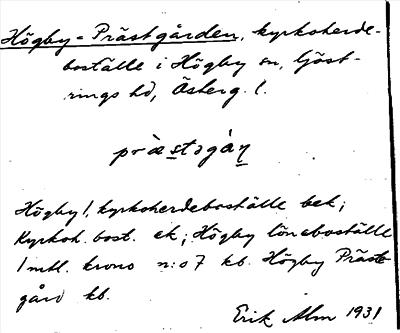 Högby-Prästgården, kyrkoherde-
boställe i Högby sn, Göst-
rings hd, Österg. l.
prästəgàɳ
Högby 1, kyrkoherdeboställe bek;
Kyrkoh. bost. ek; Högby löneboställe
1 mtl. krono n:o 7 kb. Högby Präst-
gård kb.
Erik Alm 1931